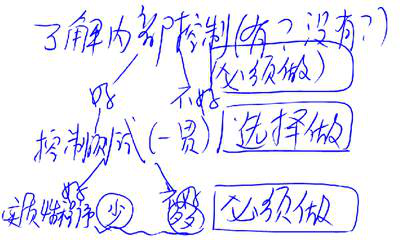 了解内部控制(有？没有？)
(必须做)
好 不好
控制测试(一贯) 选择做
好
实质性程序 少 多 必须做